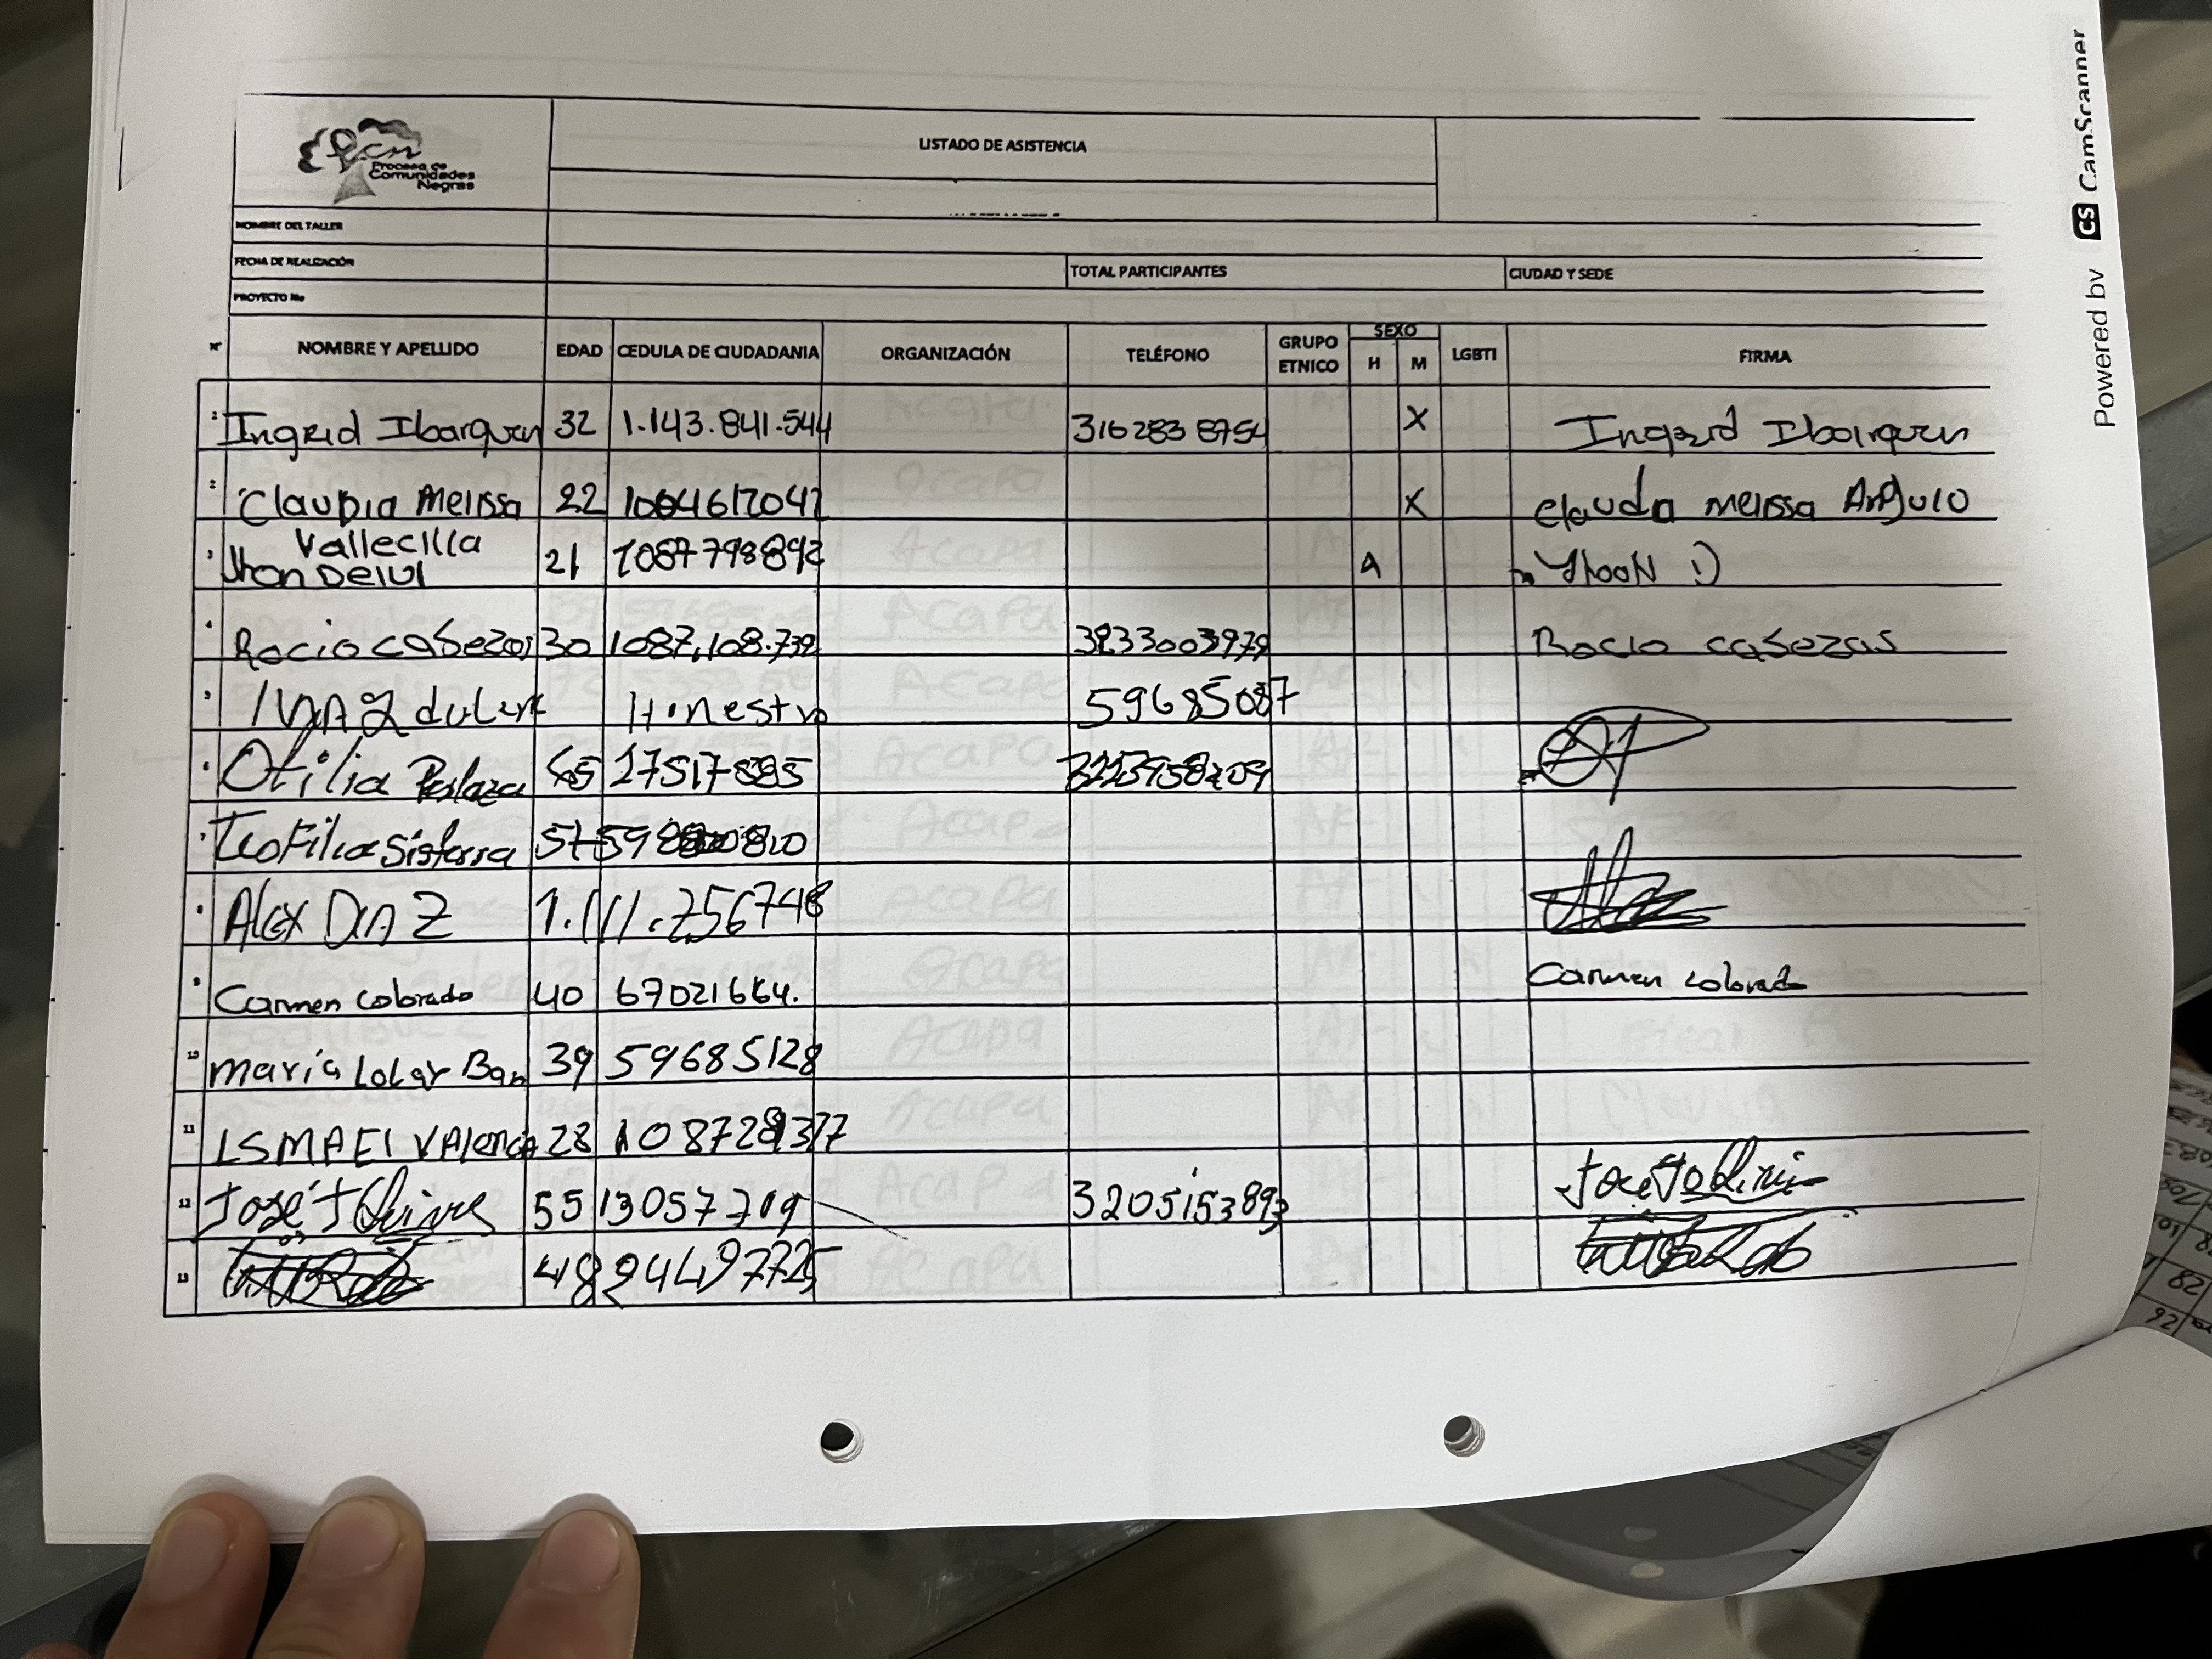 Powered by CS CamScanner
pcn
Proceso de
Comunidades
Negras
LISTADO DE ASISTENCIA
NOMBRE DEL TALLER
FECHA DE REALIZACIÓN TOTAL PARTICIPANTES CIUDAD Y SEDE
PROYECTO No
N° NOMBRE Y APELLIDO EDAD CEDULA DE CIUDADANIA ORGANIZACIÓN TELÉFONO GRUPO ETNICO SEXO H M LGBTI FIRMA
1 Ingrid Ibarguen 32 1.143.841.544 316 283 8754 X Ingrid Ibarguen
2 Claudia Melissa 22 1004617042 X Claudia Melissa Angulo
3 Vallecilla
Jhon Deivi 21 1087798892 A Jhoon :)
4 Rocio cabezas 30 1087,108.739 Rocio cabezas
5 Hinestro 59685087
6 Otilia Perlaza 27517885
7 Teofilia Sisterra
8 Alex DIAZ 1.111.756748
9 Carmen Colorado 40 67021664. Carmen Colorado
10 Maria 39 59685128
11 ISMAEL VAlencia 28
12 José J 55 13057719 3205153893
13 48 94497725